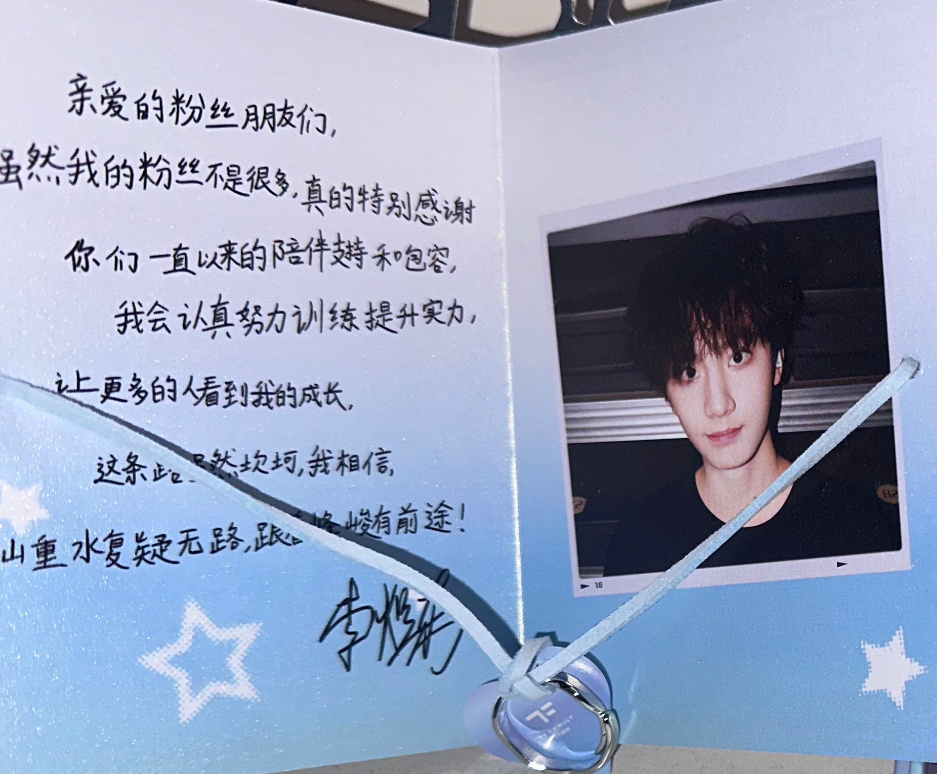 亲爱的粉丝朋友们,
虽然我的粉丝不是很多,真的特别感谢
你们一直以来的陪伴支持和包容,
我会认真努力训练提升实力,
让更多的人看到我的成长,
这条路虽然坎坷,我相信,
山重水复疑无路,跟 峻有前途!
李煜
18